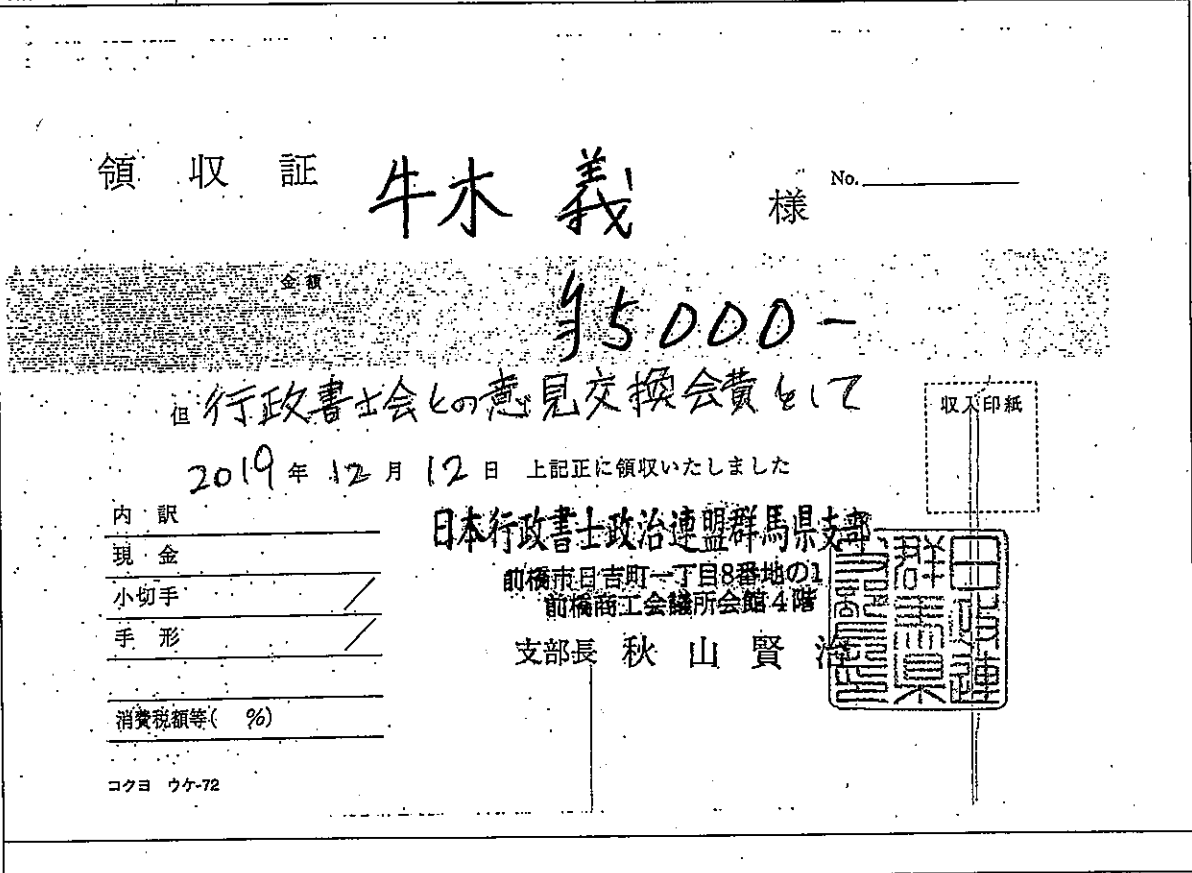 領収証 牛木 義 様 No.
金額
¥5000-
但 行政書士会との意見交換会費として
収入印紙
2019年12月12日 上記正に領収いたしました
内訳
現金
小切手 /
手形 /
消費税額等( %)
日本行政書士政治連盟群馬県支部
前橋市日吉町一丁目8番地の1
前橋商工会議所会館4階
支部長 秋山賢治
コクヨ ウケ-72